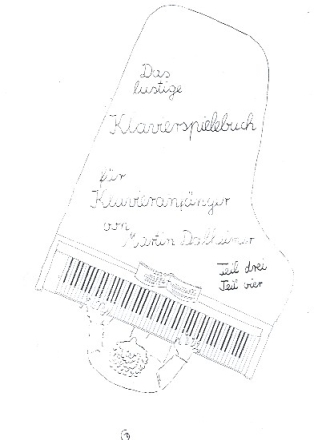 Das
lustige
Klavierspielebuch
für
Klavieranfänger
von
Martin Dalheimer
Teil drei
Teil vier